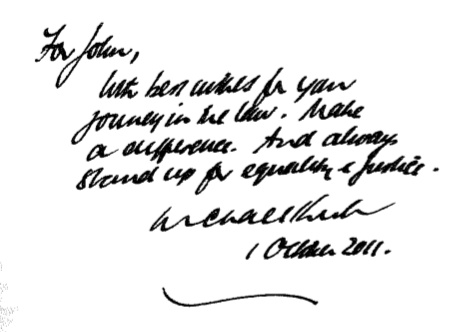 For John,
With best wishes for your
journey in the law. Make
a difference. And always
stand up for equality & justice.
Michael Kirby
1 October 2011.